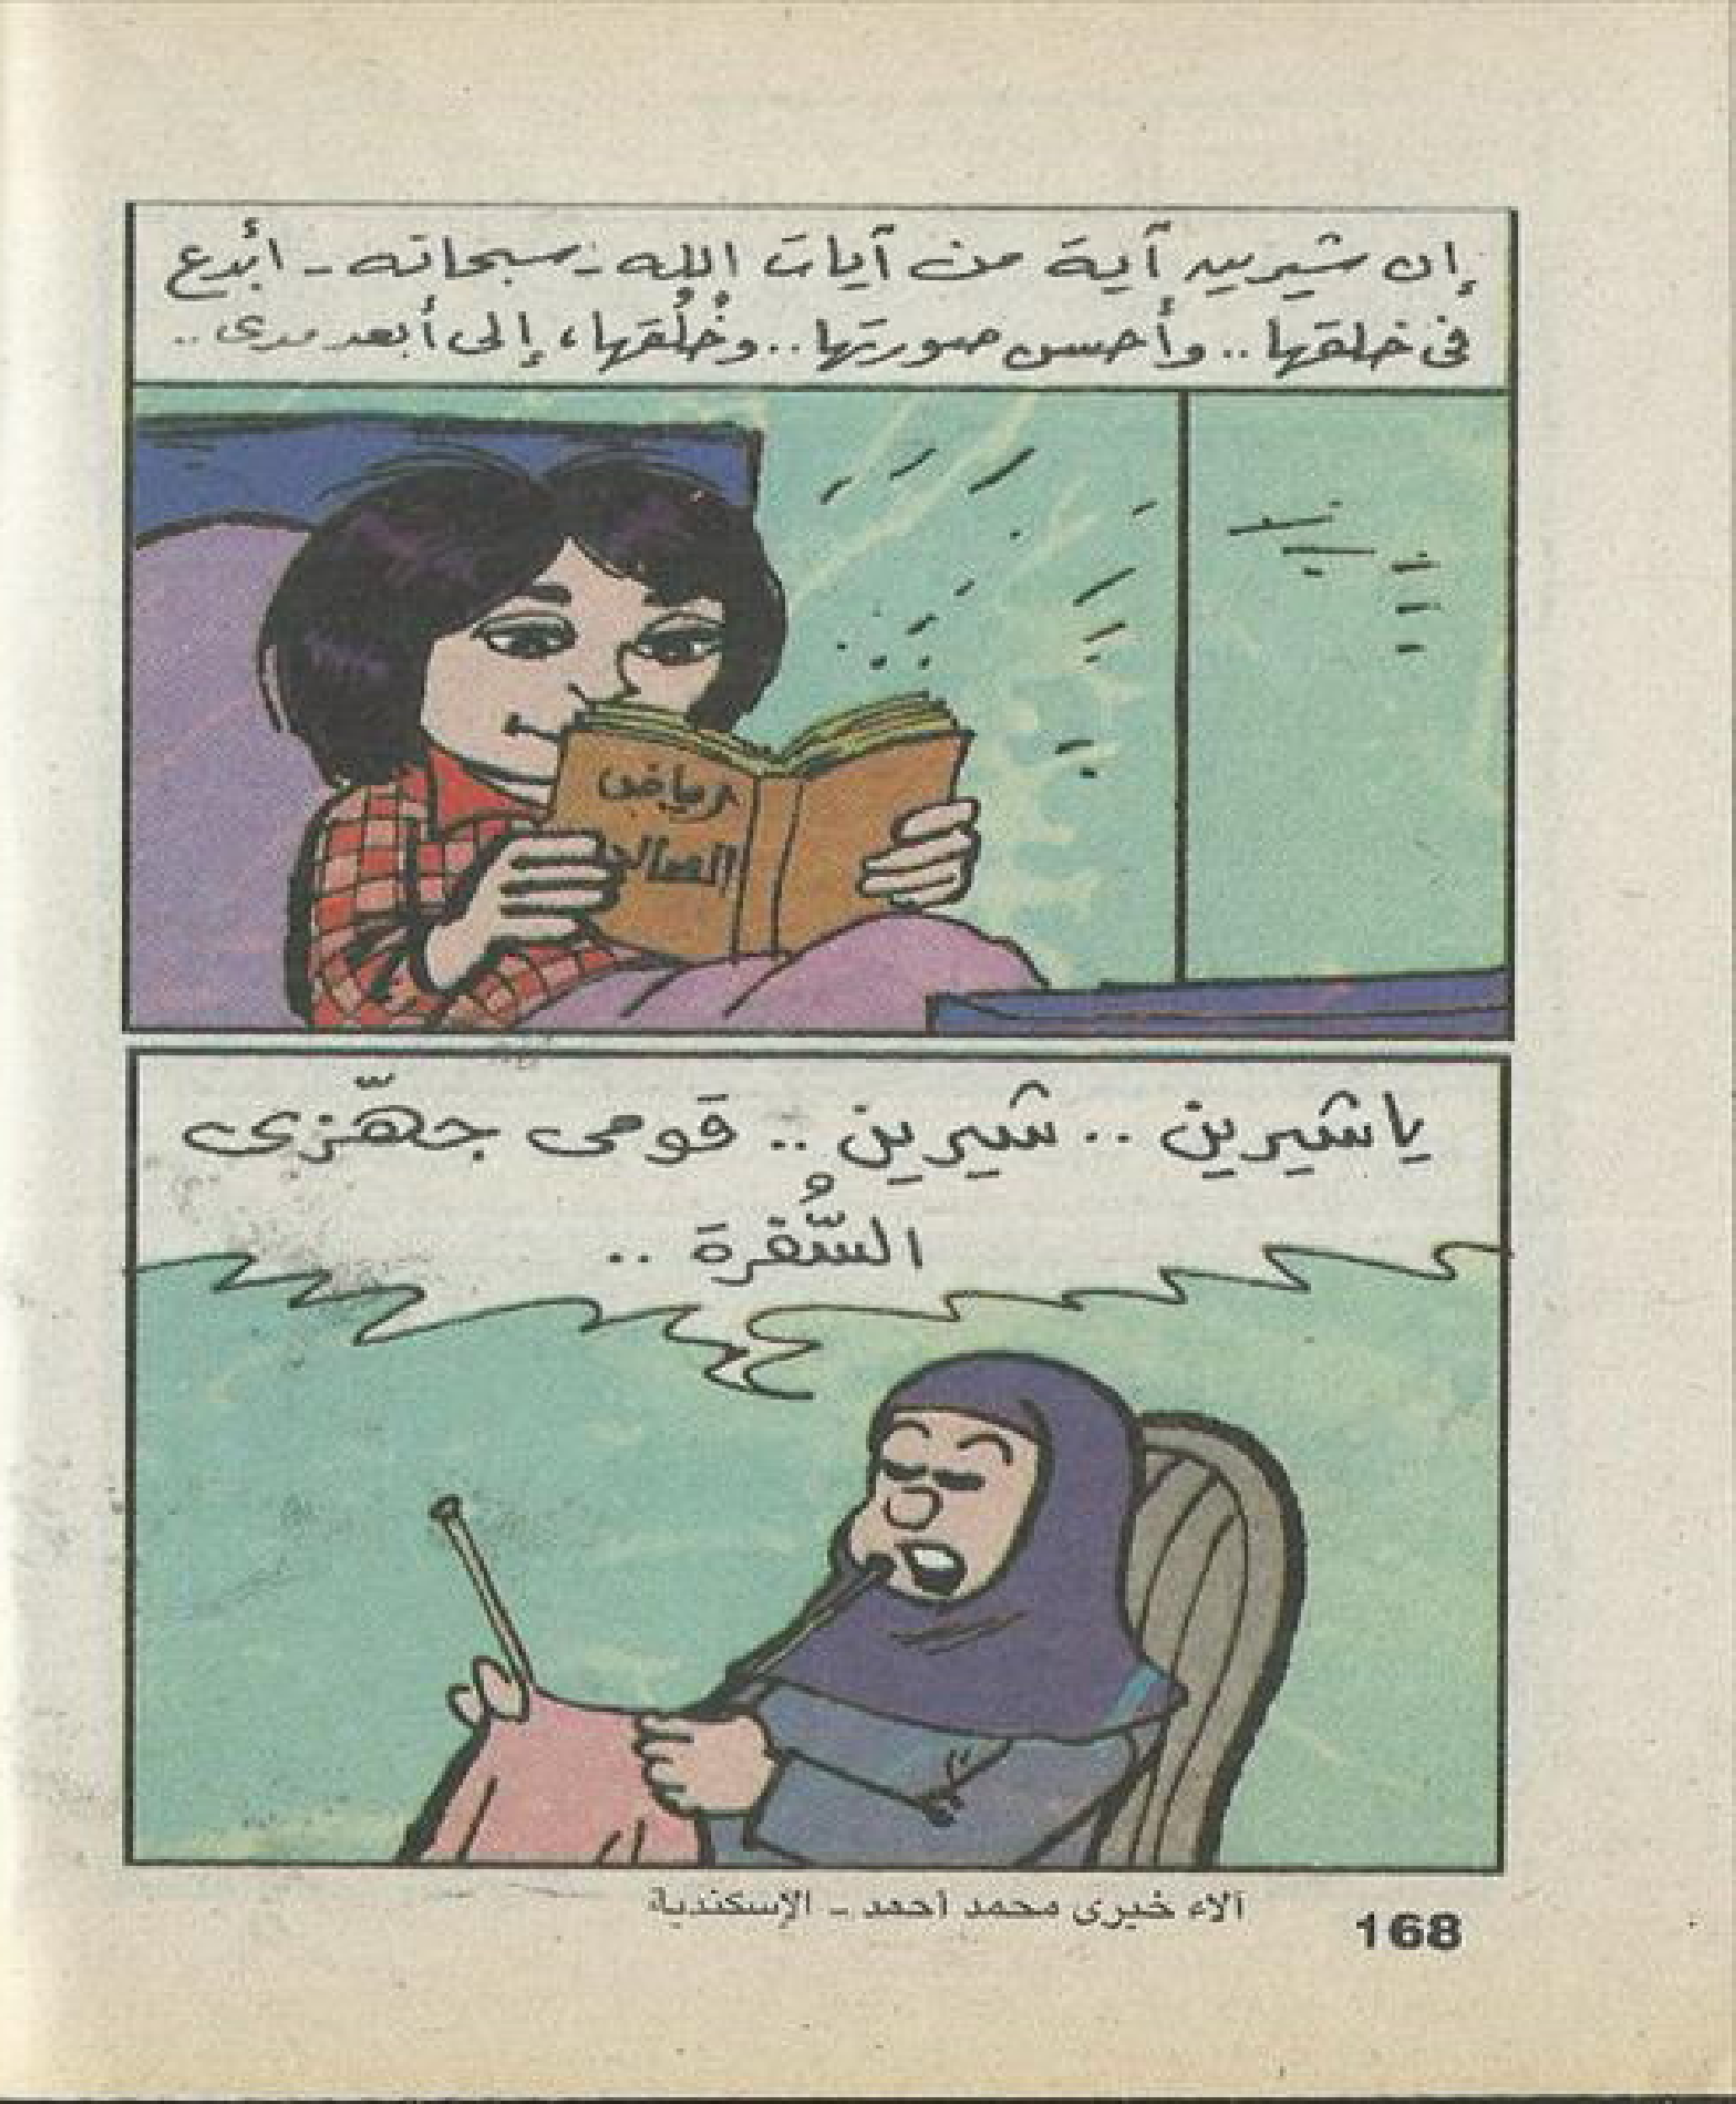 إن شيرين آية من آيات الله - سبحانه - أبدع
فى خلقها .. وأحسن صورتها .. وخُلُقها، إلى أبعد مدى ..
رياض
الصالح
ياشيرين .. شيرين .. قومى جهّزى
السُّفرة ..
آلاء خيرى محمد أحمد - الإسكندرية
168